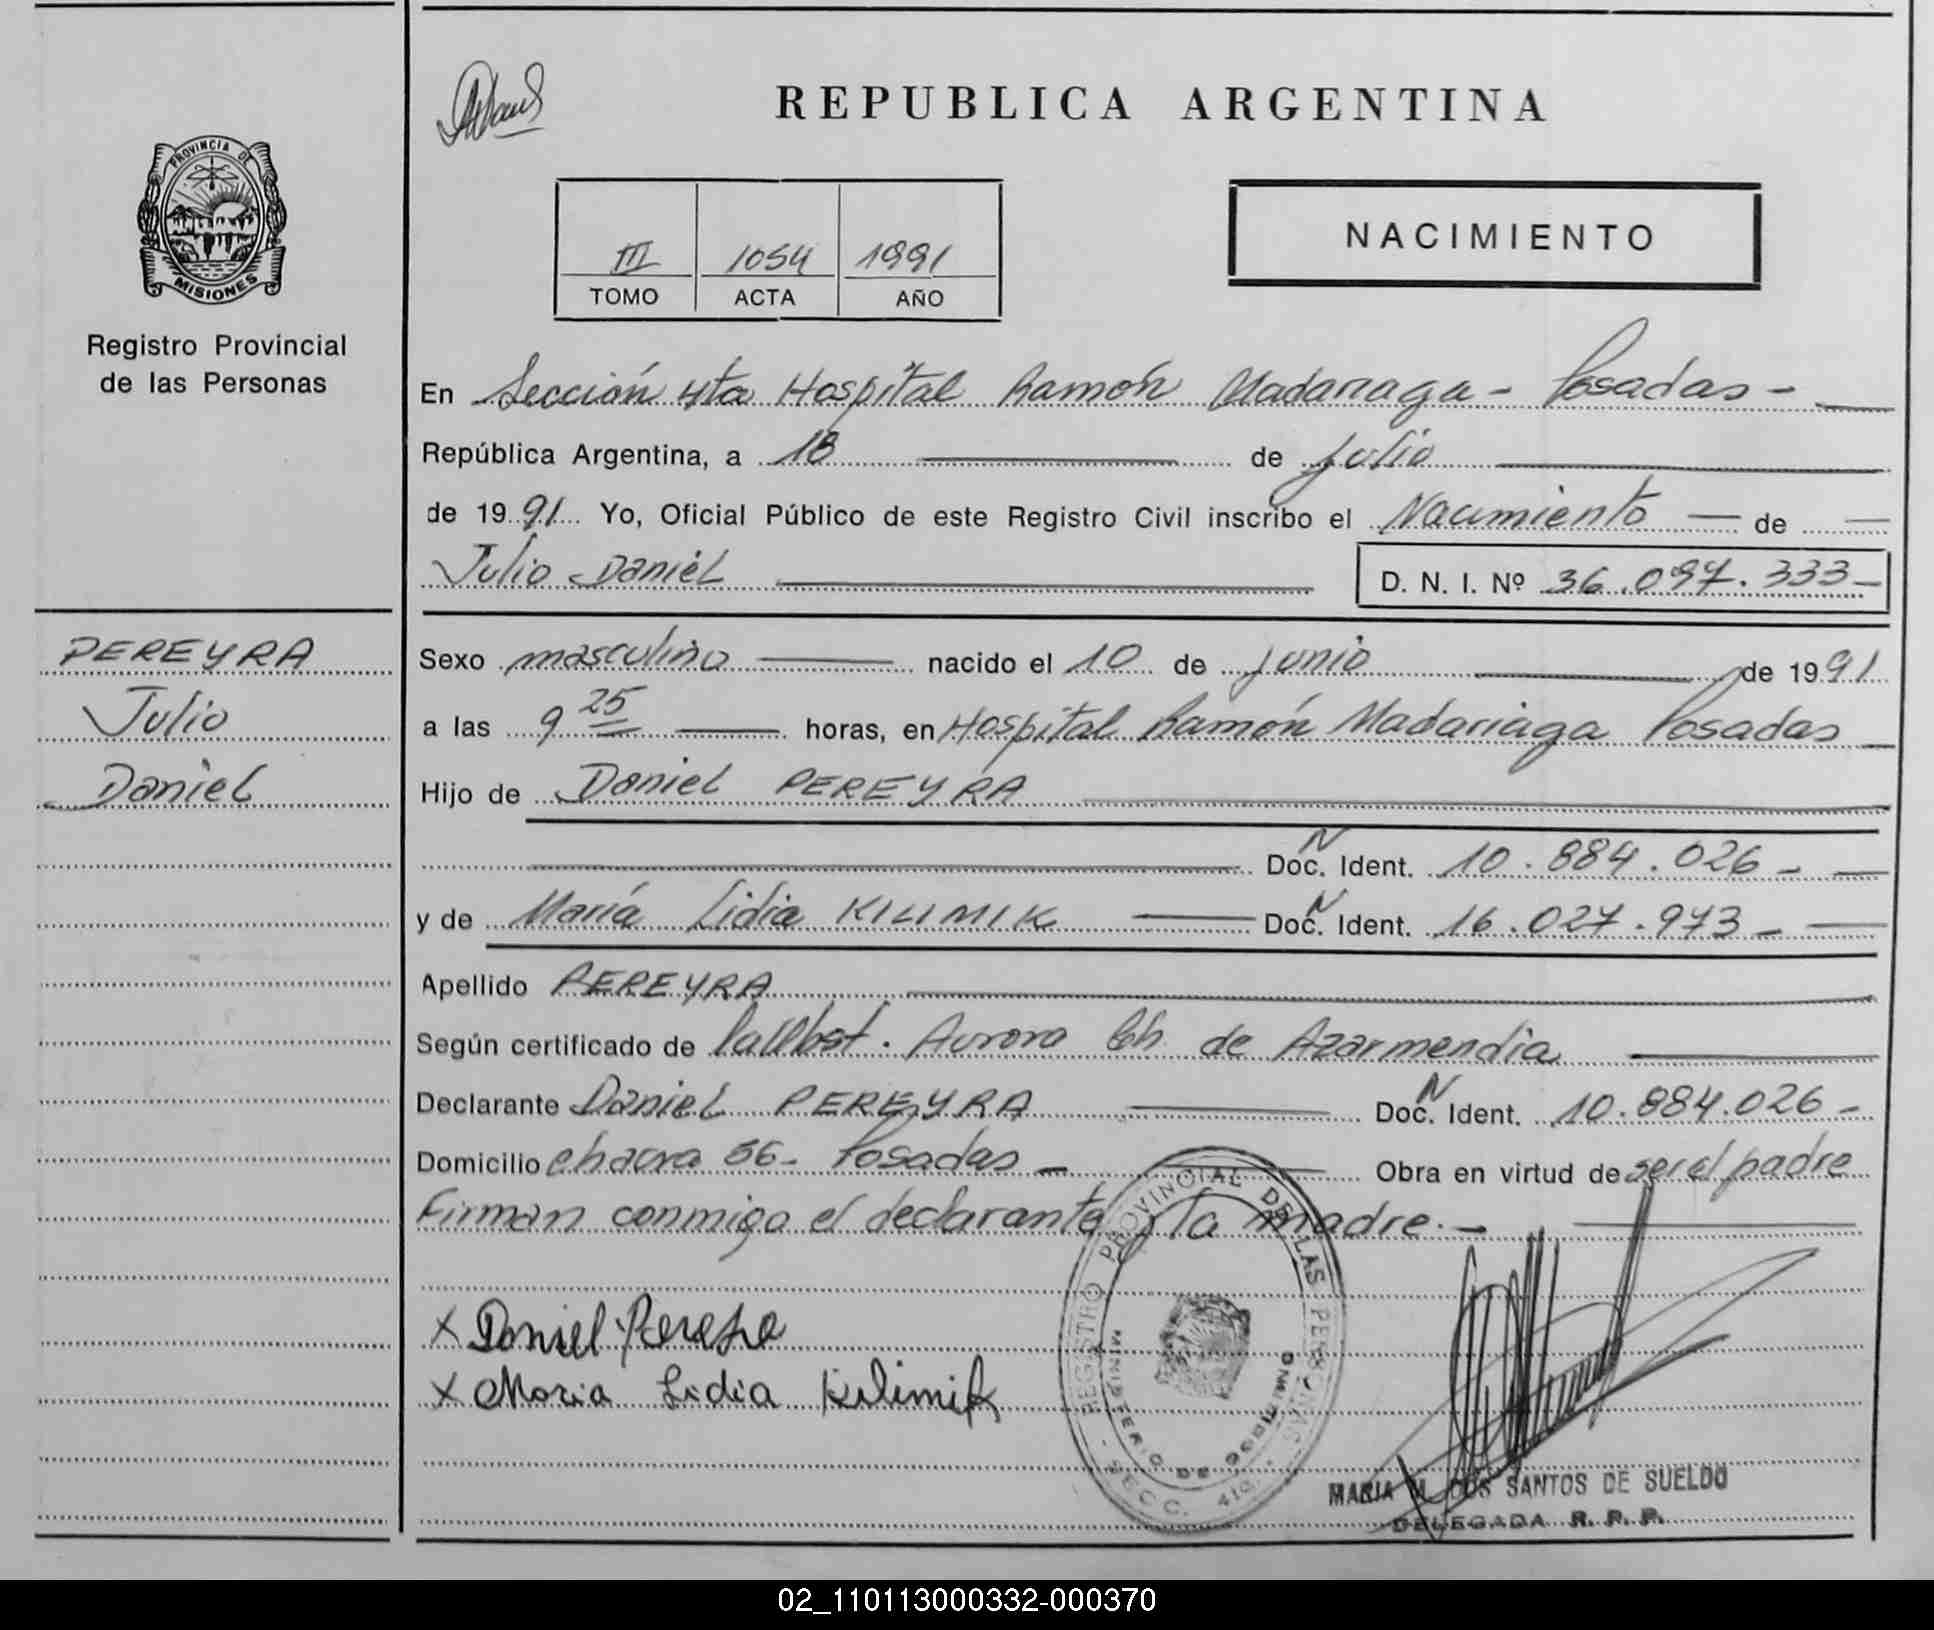 REPUBLICA ARGENTINA
PROVINCIA DE
MISIONES
Registro Provincial
de las Personas
III 1054 1991
TOMO ACTA AÑO
NACIMIENTO
En Sección 4ta Hospital Ramón Madariaga - Posadas -
República Argentina, a 18 de Julio
de 1991 Yo, Oficial Público de este Registro Civil inscribo el Nacimiento de
Julio Daniel D. N. I. Nº 36.097.333-
PEREYRA
Julio
Daniel
Sexo masculino nacido el 10 de junio de 1991
a las 9 25 horas, en Hospital Ramón Madariaga Posadas
Hijo de Daniel PEREYRA
N
Doc. Ident. 10.884.026-
y de María Lidia KILIMIK N Doc. Ident. 16.027.973-
Apellido PEREYRA
Según certificado de Aurora de Azarmendia
Declarante Daniel PEREYRA N Doc. Ident. 10.884.026-
Domicilio chacra 56- Posadas - Obra en virtud de ser el padre
Firman conmigo el declarante y la madre.-
X Daniel Pereyra
X Maria Lidia Kilimik
REGISTRO PROVINCIAL DE LAS PERSONAS - SECC. 4ta.
MINISTERIO DE GOBIERNO
MARIA M. DOS SANTOS DE SUELDO
DELEGADA R. P. P.
02_110113000332-000370